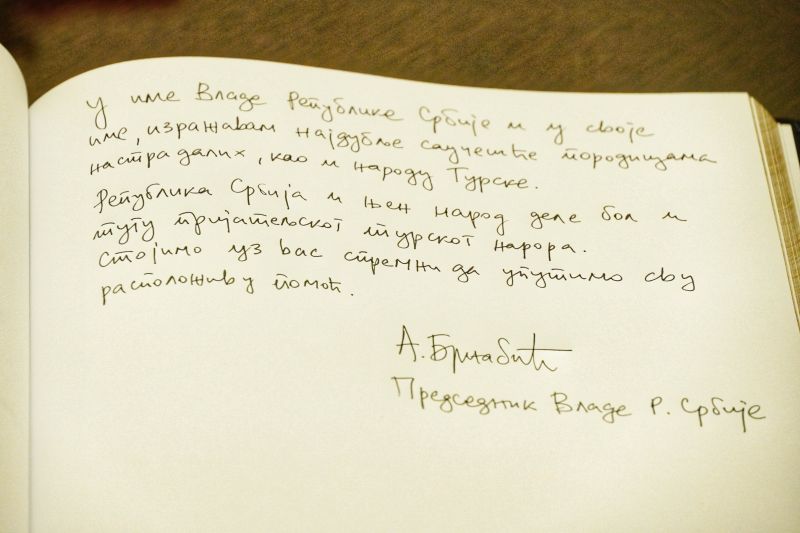 У име Владе Републике Србије и у своје
име, изражавам најдубље саучешће породицама
настрадалих, као и народу Турске.
Република Србија и њен народ деле бол и
тугу пријатељског турског народа.
Стојимо уз вас спремни да упутимо сву
расположиву помоћ.
А. Брнабић
Председник Владе Р. Србије